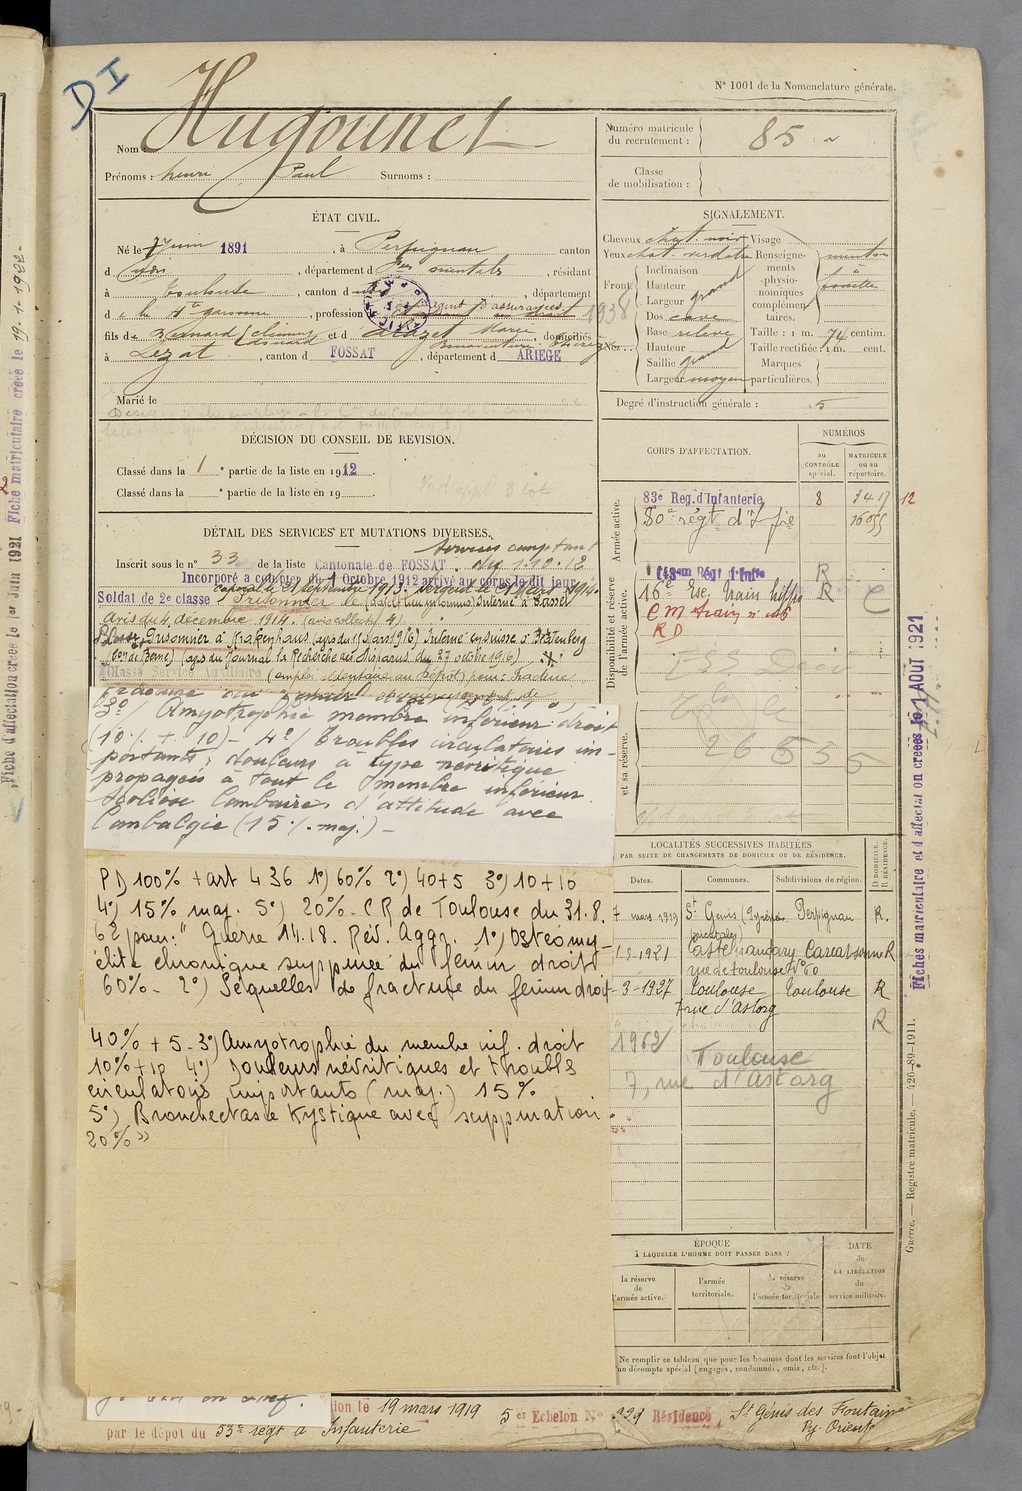 DI
N° 1001 de la Nomenclature générale.
Nom : Hugounet
Prénoms : henri Paul Surnoms :
Numéro matricule du recrutement : 85
Classe de mobilisation :
ÉTAT CIVIL.
Né le 7 Juin 1891, à Perpignan canton
d udit, département d Pées orientales, résidant
à Toulouse, canton d udit, département
d e la Hte garonne, profession d'agent d'assurances 1938
Étudiant en droit
fils de Bernard et d Marie, domiciliés
à Lezat, canton d FOSSAT, département d ARIEGE
Marié le
SIGNALEMENT.
Cheveux chat. noir Visage
Yeux chat. verdâtre Renseignements physionomiques complémentaires. menton à fossette
Front Inclinaison
Hauteur grand
Largeur
Nez Dos cave
Base relevé Taille : 1 m. 74 centim.
Hauteur grand Taille rectifiée : 1 m. cent.
Saillie Marques
Largeur moyen particulières.
Degré d'instruction générale : 5
DÉCISION DU CONSEIL DE REVISION.
Classé dans la 1e partie de la liste en 1912
Classé dans la e partie de la liste en 19
DÉTAIL DES SERVICES ET MUTATIONS DIVERSES.
Services comptant
Inscrit sous le n° 33 de la liste Cantonale de FOSSAT. du 1.10.12
Incorporé a compter du 1 Octobre 1912 arrivé au corps le dit jour
Soldat de 2e classe
Caporal le septembre 1913. Sergent le Mars 1914.
Prisonnier le (date et lieu inconnus) Interné à Cassel
Avis du 4 décembre 1914. (avis collectif 4)
Blessé, Prisonnier à Krakenhaus (avis du 11 Mars 1916) Interné en Suisse, à Beatenberg
(don de Berne) (avis du Journal la Recherche des Disparus du 27 octobre 1916)
Classé Service Auxiliaire (emploi sédentaire au Dépôt) pour: Fracture
3°/ Amyotrophie membre inférieur droit
(10% + 10) - 4°/ Troubles circulatoires im-
portants, douleurs à type névritique
propagées à tout le membre inférieur
Scoliose lombaire, d'attitude avec
lombalgie (15% maj.) -
PD 100% + art 4 36 1°) 60% 2°) 40+5 3°) 10+10
4°) 15% maj. 5°) 20% - CR de Toulouse du 31.8.
62 pour: " Guerre 14.18. Rév. Aggr. 1°) Ostéomy-
élite chronique suppurée du fémur droit
60% - 2°) Séquelles de fracture du fémur droit
40% + 5 - 3°) Amyotrophie du membre inf. droit
10% + 10 4°) Douleurs névritiques et troubles
circulatoires importants (maj.) 15%
5°) Bronchectasie Kystique avec suppuration
20% »
CORPS D'AFFECTATION.
NUMÉROS
au CONTRÔLE spécial.
MATRICULE ou au répertoire.
Armée active.
83e Reg. d'Infanterie 8 3417 12
80e régt d'Infie 16055
Disponibilité et réserve de l'armée active.
143em Régt d'Inftie R
16e Esc. train hippo R C
CM train n° 16
RD
26555
et sa réserve.
LOCALITÉS SUCCESSIVES HABITÉES
PAR SUITE DE CHANGEMENTS DE DOMICILE OU DE RÉSIDENCE.
Dates. Communes. Subdivisions de région. D DOMICILE. R RÉSIDENCE.
7 mars 1919 St Genis (Pyrénées orientales) Perpignan R.
1-5-1921 Castelnaudary Carcassonne R
rue de toulouse N° 60
-3-1927 Toulouse Toulouse R
7 rue d'Astorg
R
1962 Toulouse
7, rue d'Astorg
ÉPOQUE
À LAQUELLE L'HOMME DOIT PASSER DANS :
la réserve de l'armée active.
l'armée territoriale.
la réserve de l'armée territoriale
DATE de LA LIBÉRATION du service militaire.
Ne remplir ce tableau que pour les hommes dont les services font l'objet
d'un décompte spécial [engagés, condamnés, omis, etc.].
ion le 19 mars 1919 5er Echelon N° 399 Résidence St Génis des Fontaines
par le dépot du 53e régt d'Infanterie Py. Orient
Guerre. — Registre matricule. — 426-89-1911.
Fiches matriculaire et d'affectation creées le 1 AOUT 1921
Fiche d'affectation creee le 1er Juin 1921 Fiche matriculaire créée le 19-1-1922-